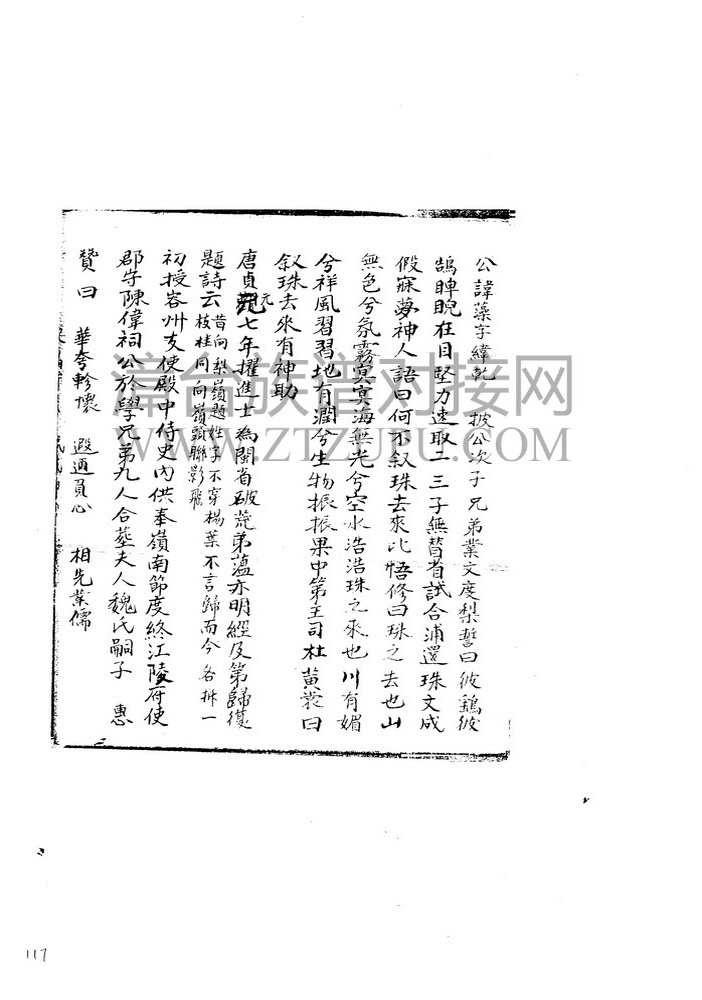 公諱藻字緯乾 披公次子 兄弟業文度梨誓曰彼鵠彼
鵠睥睨在目堅力速取二三子無替省試合浦還珠文成
假寐夢神人語曰何不叙珠去來比悟修曰珠之去也山
無色兮氛霧冥冥海無光兮空水浩浩珠之來也川有媚
兮祥風習習地有潤兮生物振振果中第主司杜黃裳曰
叙珠去來有神助
唐貞元七年擢進士為閩省破荒弟蘊亦明經及第歸復
題詩云 昔向梨嶺題姓字不穿楊葉不言歸而今各折一
枝桂同向嶺頭聯影飛
初授容州支使殿中侍史內供奉嶺南節度終江陵府使
郡守陳偉祠公於學兄弟九人合塟夫人魏氏嗣子 惠
贊曰 華夸軫懷 遐通員心 相先業儒
漳台族谱对接网
WWW.ZTZUPU.COM
117